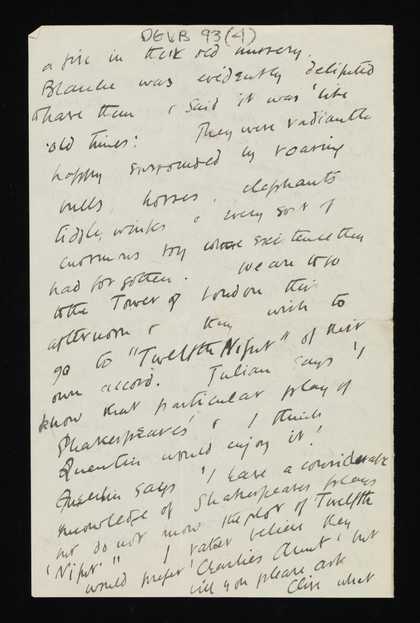 DGVB 93(4)
a fire in their old nursery.
Blanche was evidently delighted
to have them & said it was 'like
old times'. They were radiantly
happy surrounded by roaring
bulls, horses, elephants
tiddly winks & every sort of
enormous toy whose existence they
had forgotten. We are to go
to the Tower of London this
afternoon & they wish to
go to "Twelfth Night" of their
own accord. Julian says 'I
know that particular play of
Shakespeares & I think
Quentin would enjoy it!'
Quentin says 'I have a considerable
knowledge of Shakespeares plays
but do not know the plot of Twelfth
'Night'" I rather believe they
would prefer 'Charlies Aunt' but
will you please ask
Clive what